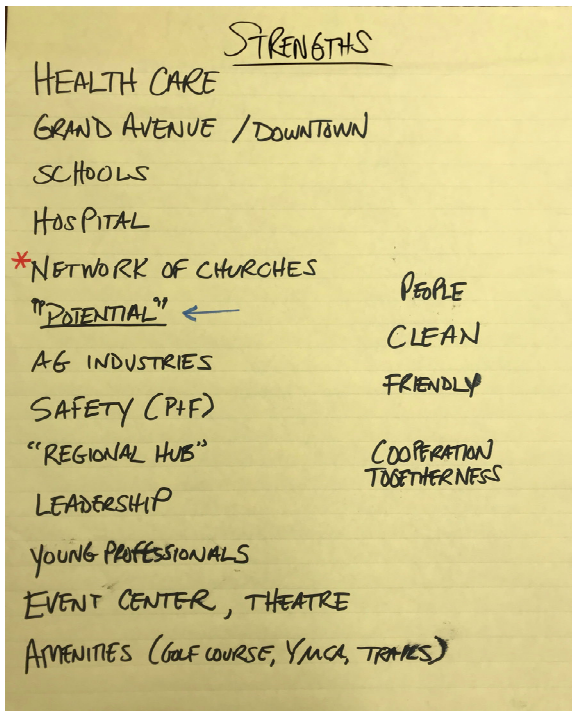 STRENGTHS
HEALTH CARE
GRAND AVENUE / DOWNTOWN
SCHOOLS
HOSPITAL
*NETWORK OF CHURCHES
"POTENTIAL" ←
AG INDUSTRIES
SAFETY (P+F)
"REGIONAL HUB"
LEADERSHIP
YOUNG PROFESSIONALS
EVENT CENTER, THEATRE
AMENITIES (GOLF COURSE, YMCA, TRAILS)
PEOPLE
CLEAN
FRIENDLY
COOPERATION
TOGETHERNESS